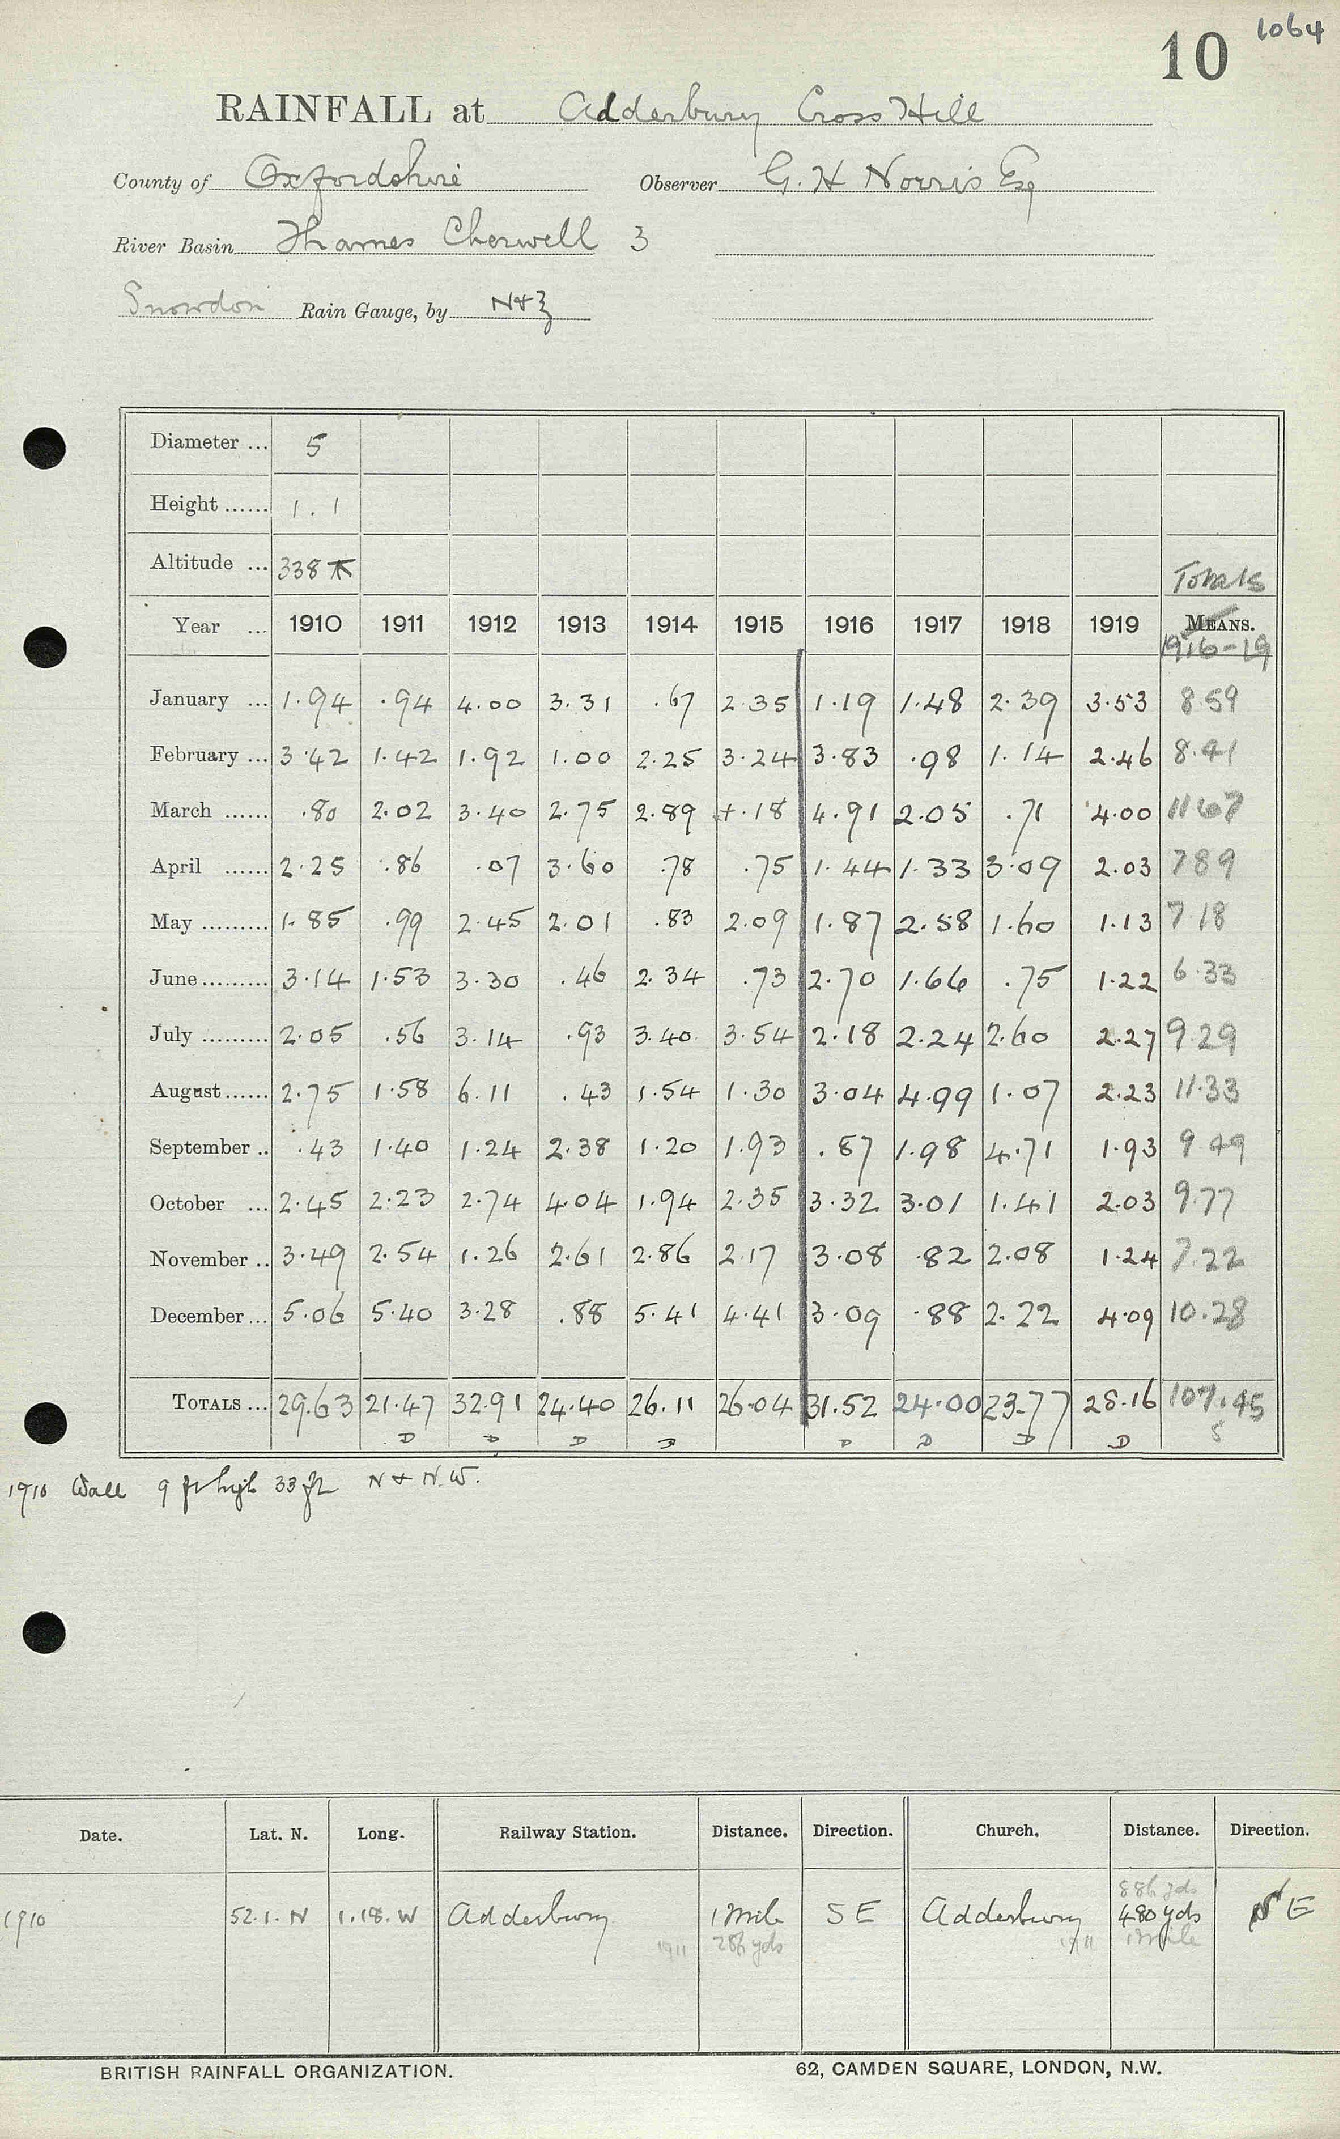 1064
10
RAINFALL at Adderbury Cross Hill
County of Oxfordshire Observer G. H Norris Esq
River Basin Thames Cherwell 3
Snowdon Rain Gauge, by N+Z
Diameter ... 5
Height ...... 1.1
Altitude ... 338 Totals
Year ... 1910 1911 1912 1913 1914 1915 1916 1917 1918 1919 MEANS.
1916-19
January ... 1.94 .94 4.00 3.31 .67 2.35 1.19 1.48 2.39 3.53 8.59
February ... 3.42 1.42 1.92 1.00 2.25 3.24 3.83 .98 1.14 2.46 8.41
March ...... .80 2.02 3.40 2.75 2.89 1.18 4.91 2.05 .71 4.00 11.67
April ...... 2.25 .86 .07 3.60 .78 .75 1.44 1.33 3.09 2.03 7 89
May ......... 1.85 .99 2.45 2.01 .83 2.09 1.87 2.58 1.60 1.13 7 18
June ......... 3.14 1.53 3.30 .46 2.34 .73 2.70 1.66 .75 1.22 6.33
July ......... 2.05 .56 3.14 .93 3.40 3.54 2.18 2.24 2.60 2.27 9.29
August ...... 2.75 1.58 6.11 .43 1.54 1.30 3.04 4.99 1.07 2.23 11.33
September .. .43 1.40 1.24 2.38 1.20 1.93 .87 1.98 4.71 1.93 9 49
October ... 2.45 2.23 2.74 4.04 1.94 2.35 3.32 3.01 1.41 2.03 9.77
November .. 3.49 2.54 1.26 2.61 2.86 2.17 3.08 .82 2.08 1.24 7.22
December ... 5.06 5.40 3.28 .88 5.41 4.41 3.09 .88 2.22 4.09 10.28
TOTALS ... 29.63 21.47 32.91 24.40 26.11 26.04 31.52 24.00 23.77 28.16 107.45
D D D D D D D D 5
1910 Wall 9 ft high 33 ft N + N.W.
Date. Lat. N. Long. Railway Station. Distance. Direction. Church. Distance. Direction.
886 yds
1910 52.1.N 1.18.W Adderbury 1 Mile SE Adderbury 480 yds SE
1911 286 yds 1911 1 Mile
BRITISH RAINFALL ORGANIZATION. 62, CAMDEN SQUARE, LONDON, N.W.